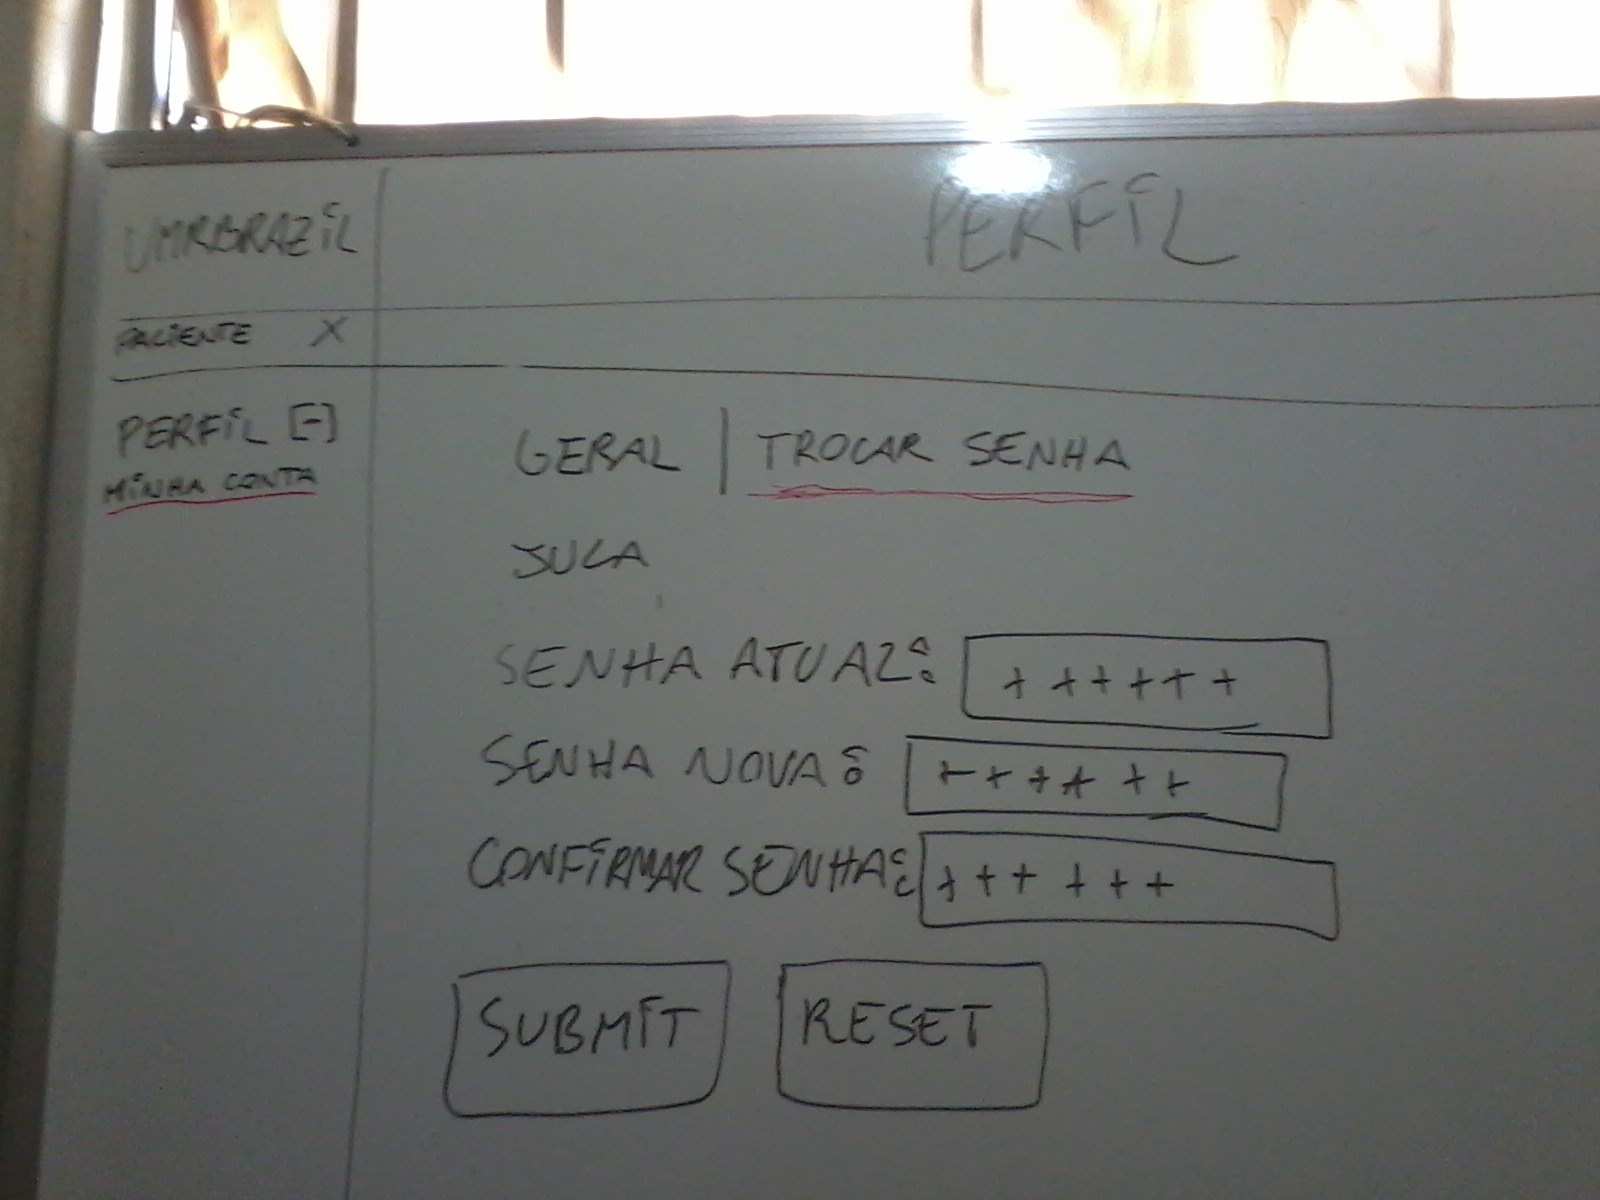 UMRBRAZIL
PERFIL
PACIENTE X
PERFIL [-]
MINHA CONTA
GERAL | TROCAR SENHA
JUCA
SENHA ATUAL: ++++++
SENHA NOVA: ++++++
CONFIRMAR SENHA: ++++++
SUBMIT RESET